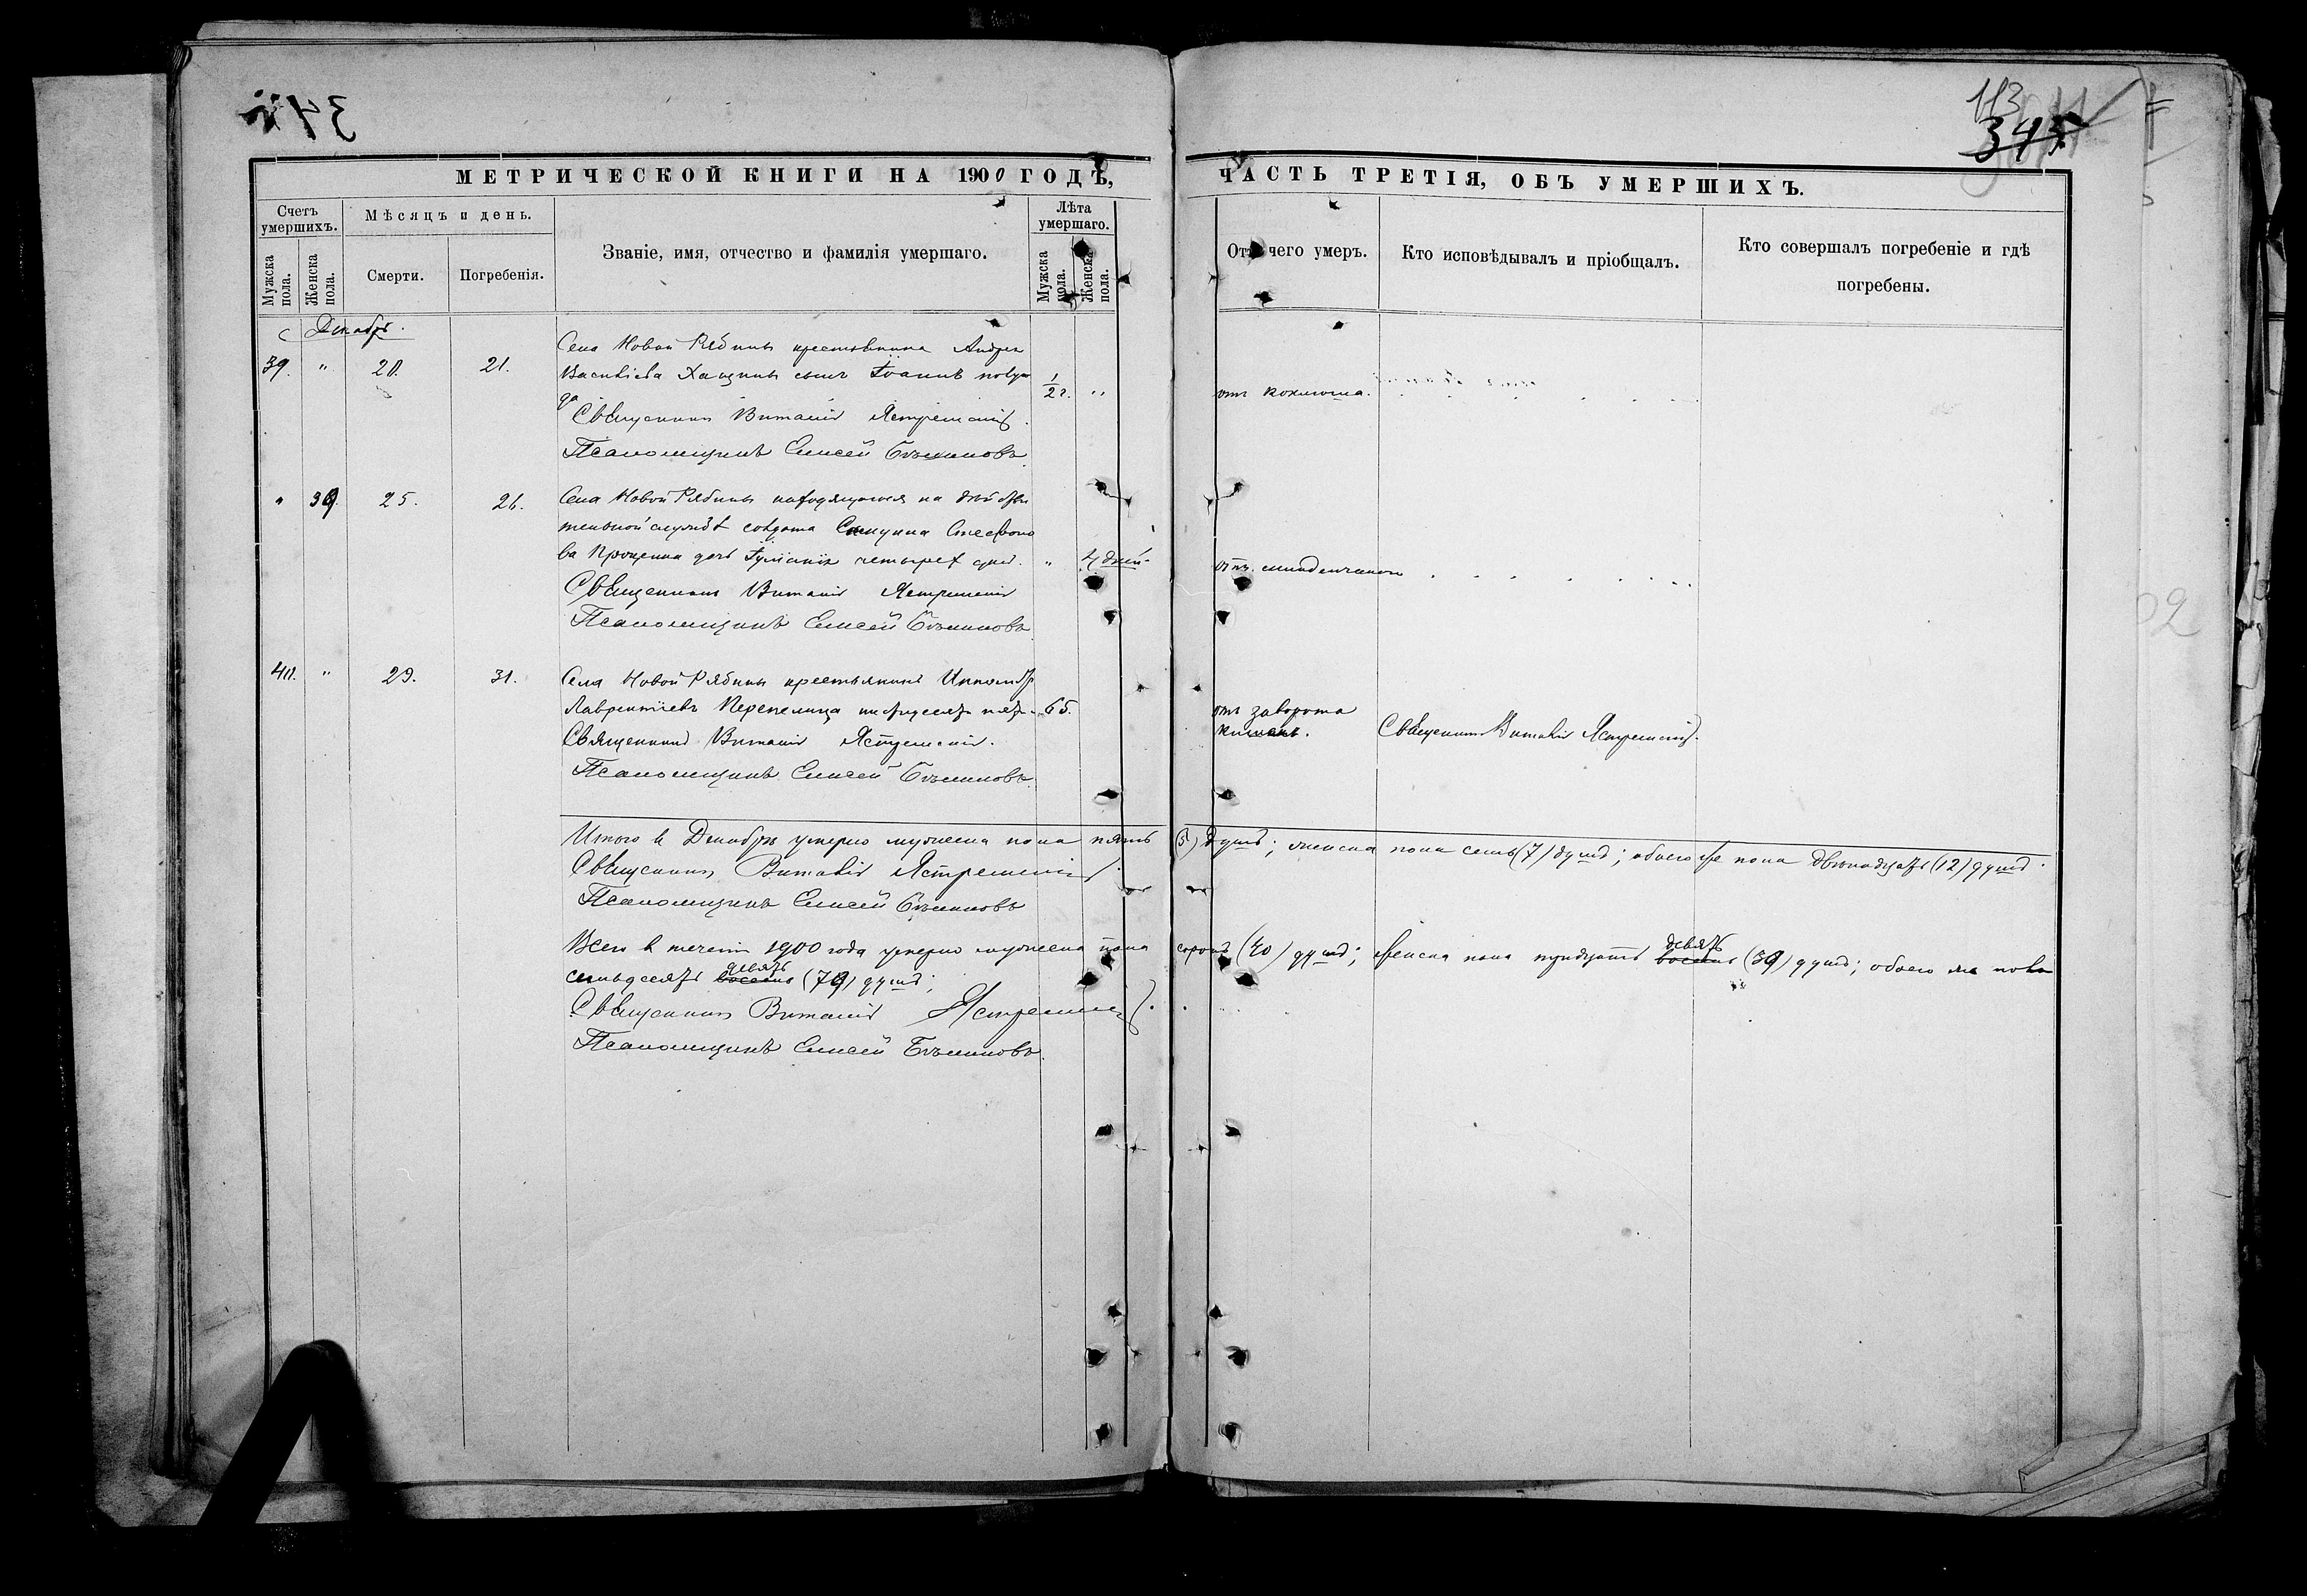 113
345
МЕТРИЧЕСКОЙ КНИГИ НА 1900 ГОДЪ,
ЧАСТЬ ТРЕТІЯ, ОБЪ УМЕРШИХЪ.
Счетъ умершихъ.
Мѣсяцъ и день.
Званіе, имя, отчество и фамилія умершаго.
Лѣта умершаго.
Мужска пола.
Женска пола.
Смерти.
Погребенія.
Мужска пола.
Женска пола.
Отъ чего умеръ.
Кто исповѣдывалъ и пріобщалъ.
Кто совершалъ погребеніе и гдѣ погребены.
Декабрь.
39. " 20. 21.
Села Новой Рябины крестьянина Андрея
Василіева сынъ Іоаннъ полуго
да 1/2 г. " отъ коклюша.
Священникъ Виталій Ястремскій.
Псаломщикъ Елисей
" 39. 25. 26.
Села Новой Рябины находящагося на дѣйстви
тельной службѣ солдата Стефано
ва дочь Іуліанія четырехъ дней. " 4 дней. отъ младенческой
Священникъ Виталій Ястремскій
Псаломщикъ Елисей
40. " 29. 31.
Села Новой Рябины крестьянинъ
Лаврентіевъ Перепелица шестидесяти пяти 65. отъ заворота
кишекъ. Священникъ Виталій Ястремскій.
Священникъ Виталій Ястремскій.
Псаломщикъ Елисей
Итого въ Декабрѣ умерло мужеска пола пять (5) душъ; женска пола семь (7) душъ; обоего же пола двѣнадцать (12) душъ.
Священникъ Виталій Ястремскій.
Псаломщикъ Елисей
Всего въ теченіи 1900 года умерло мужеска пола сорокъ (40) душъ; женска пола тридцать восемь девять (39) душъ; обоего же пола
семьдесятъ восемь девять (79) душъ;
Священникъ Виталій Ястремскій.
Псаломщикъ Елисей